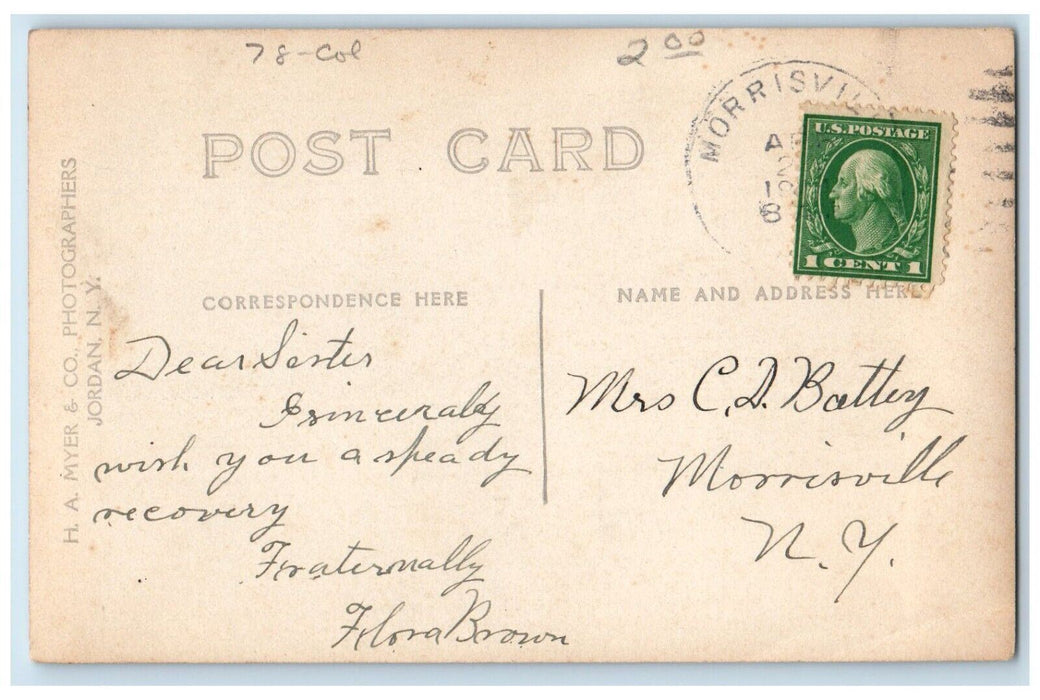 78-Col
2 00
MORRISVI
POST CARD
U.S. POSTAGE
1 CENT 1
H. A. MYER & CO., PHOTOGRAPHERS
JORDAN, N. Y.
CORRESPONDENCE HERE
NAME AND ADDRESS HERE
Dear Sister
I sincerally
wish you a speady
recovery
Fraternally
Flora Brown
Mrs C. D. Battey
Morrisville
N. Y.